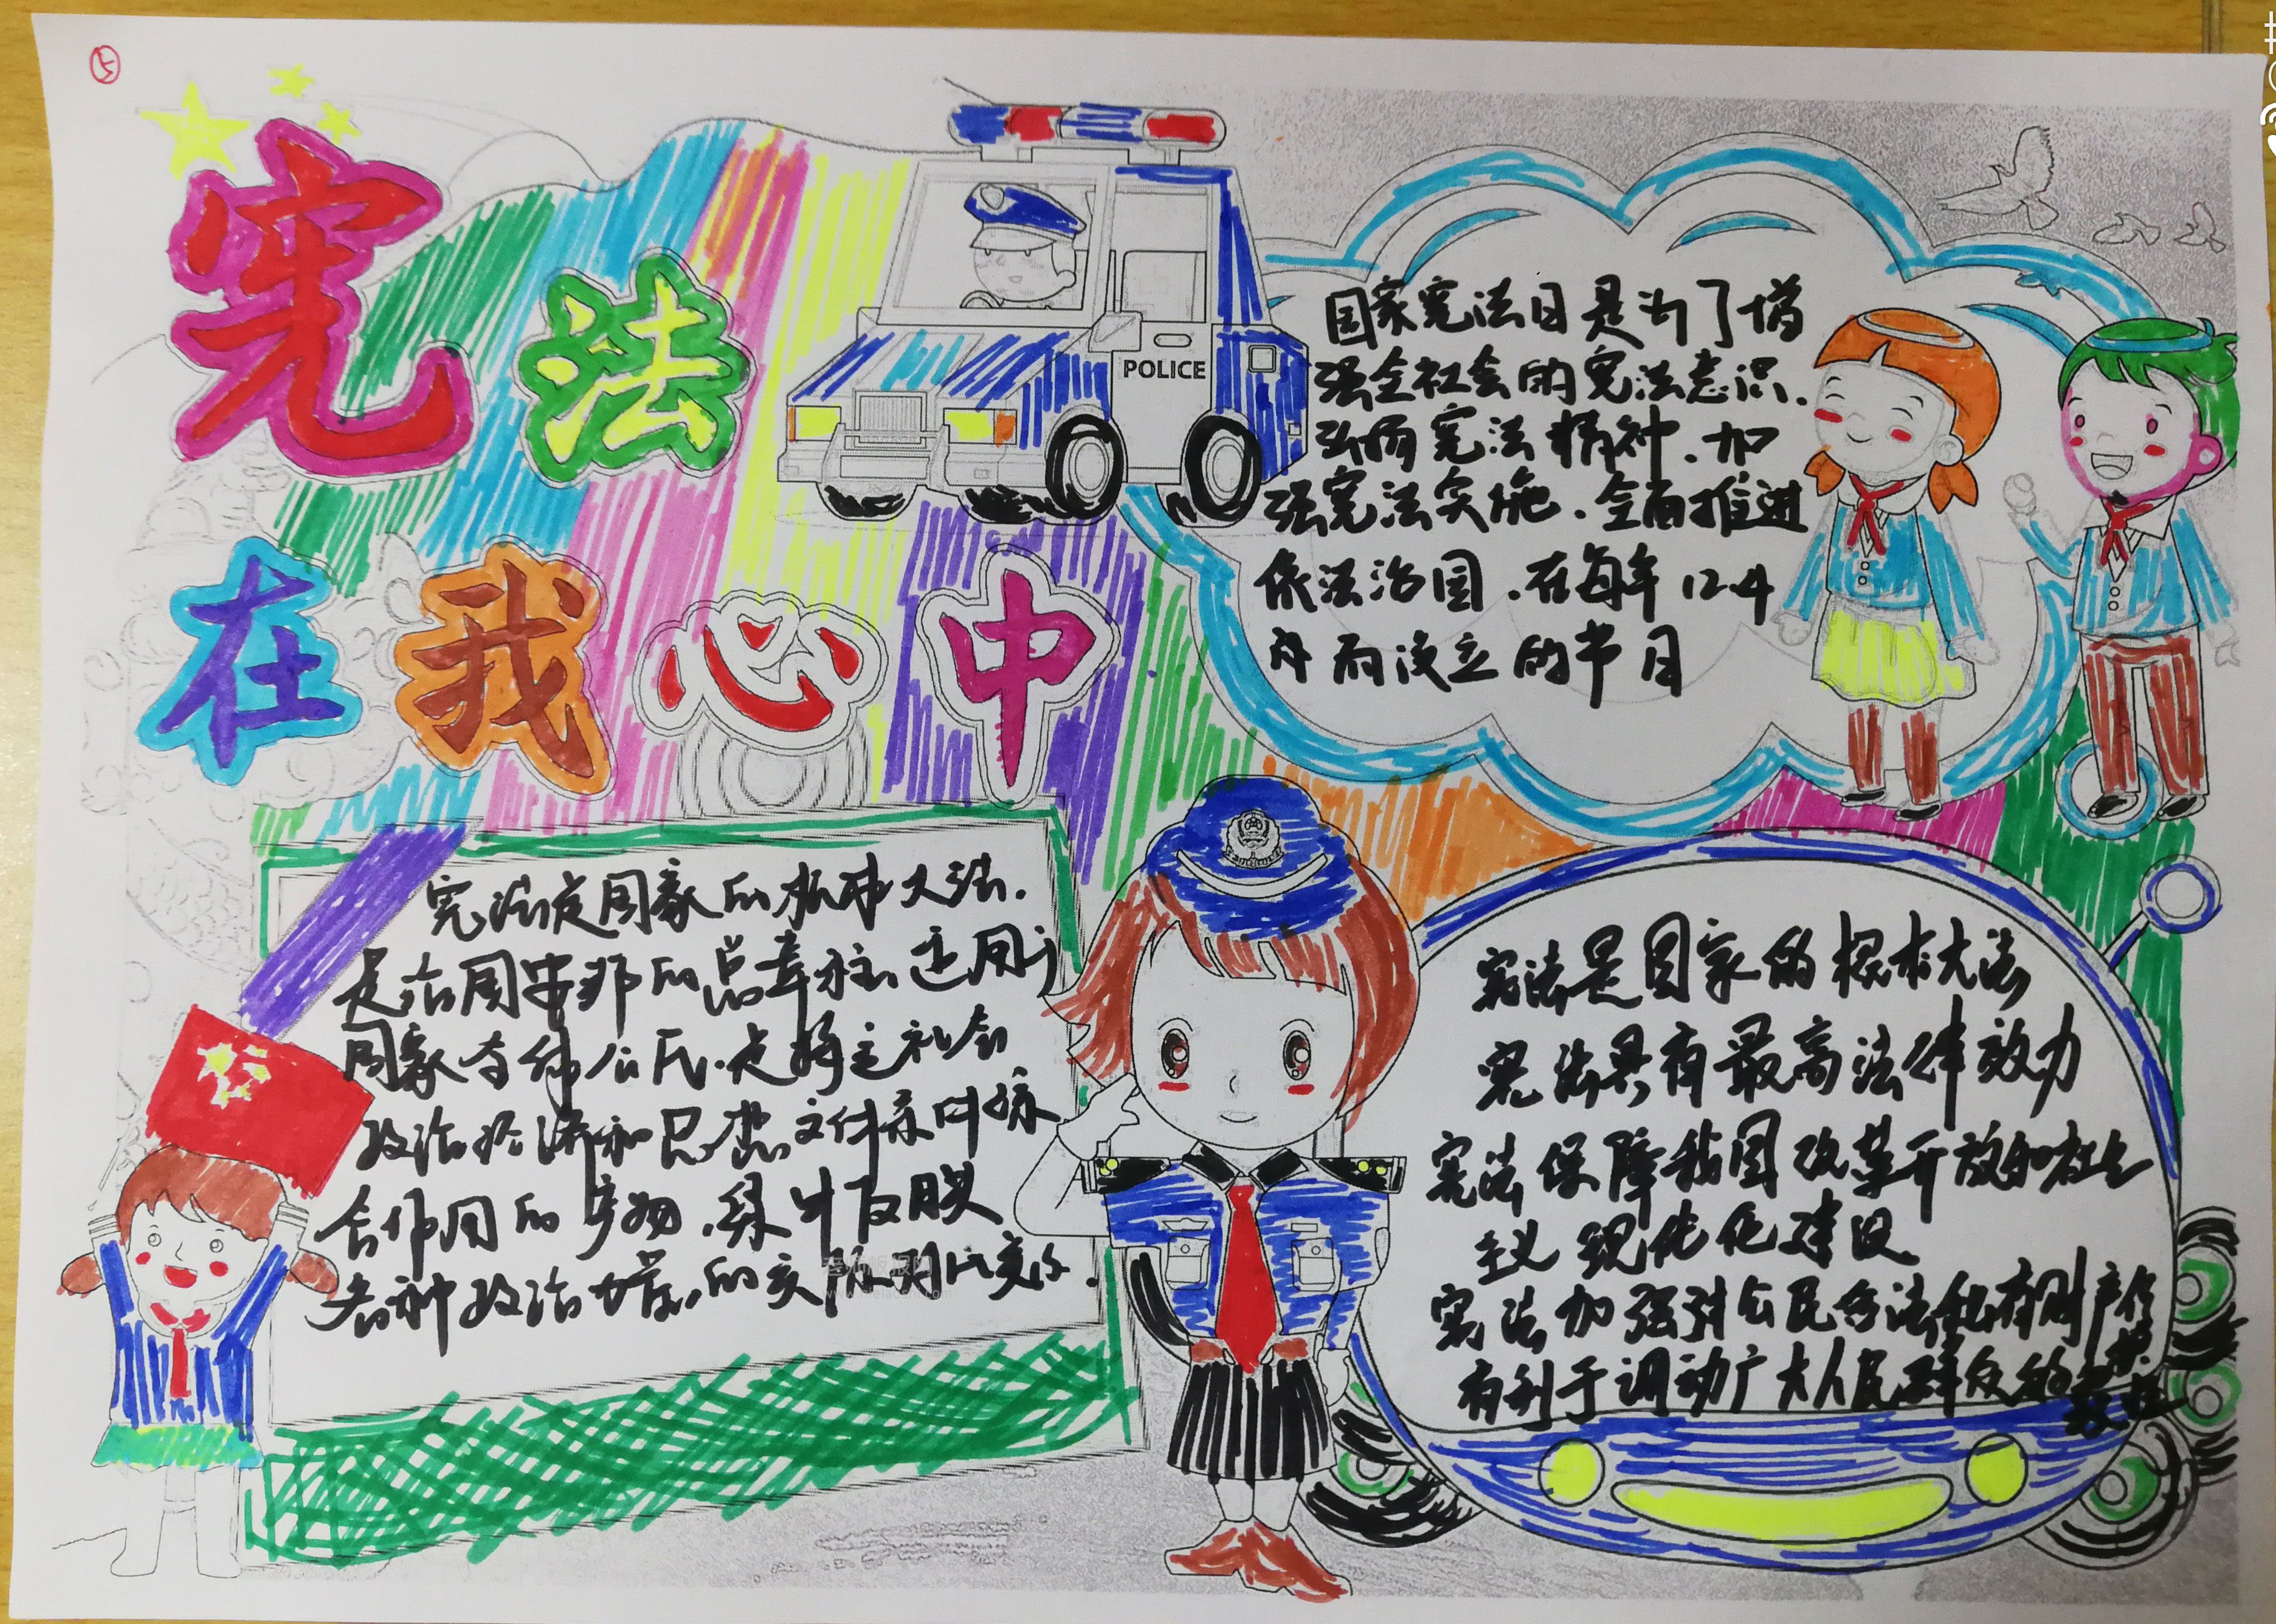 五
宪法
在我心中
POLICE
国家宪法日是为了增
强全社会的宪法意识.
弘扬宪法精神.加
强宪法实施.全面推进
依法治国.在每年12.4
日而设立的节日
宪法是国家的根本大法.
是治国安邦的总章程.适用于
国家全体公民.是特定社会
政治经济和思想文化条件综
合作用的产物.集中反映
各种政治力量的实际对比变化.
宪法是国家的根本大法
宪法具有最高法律效力
宪法保障我国改革开放和社会
主义现代化建设
宪法加强引公民合法私有财产保护
有利于调动广大人民群众的